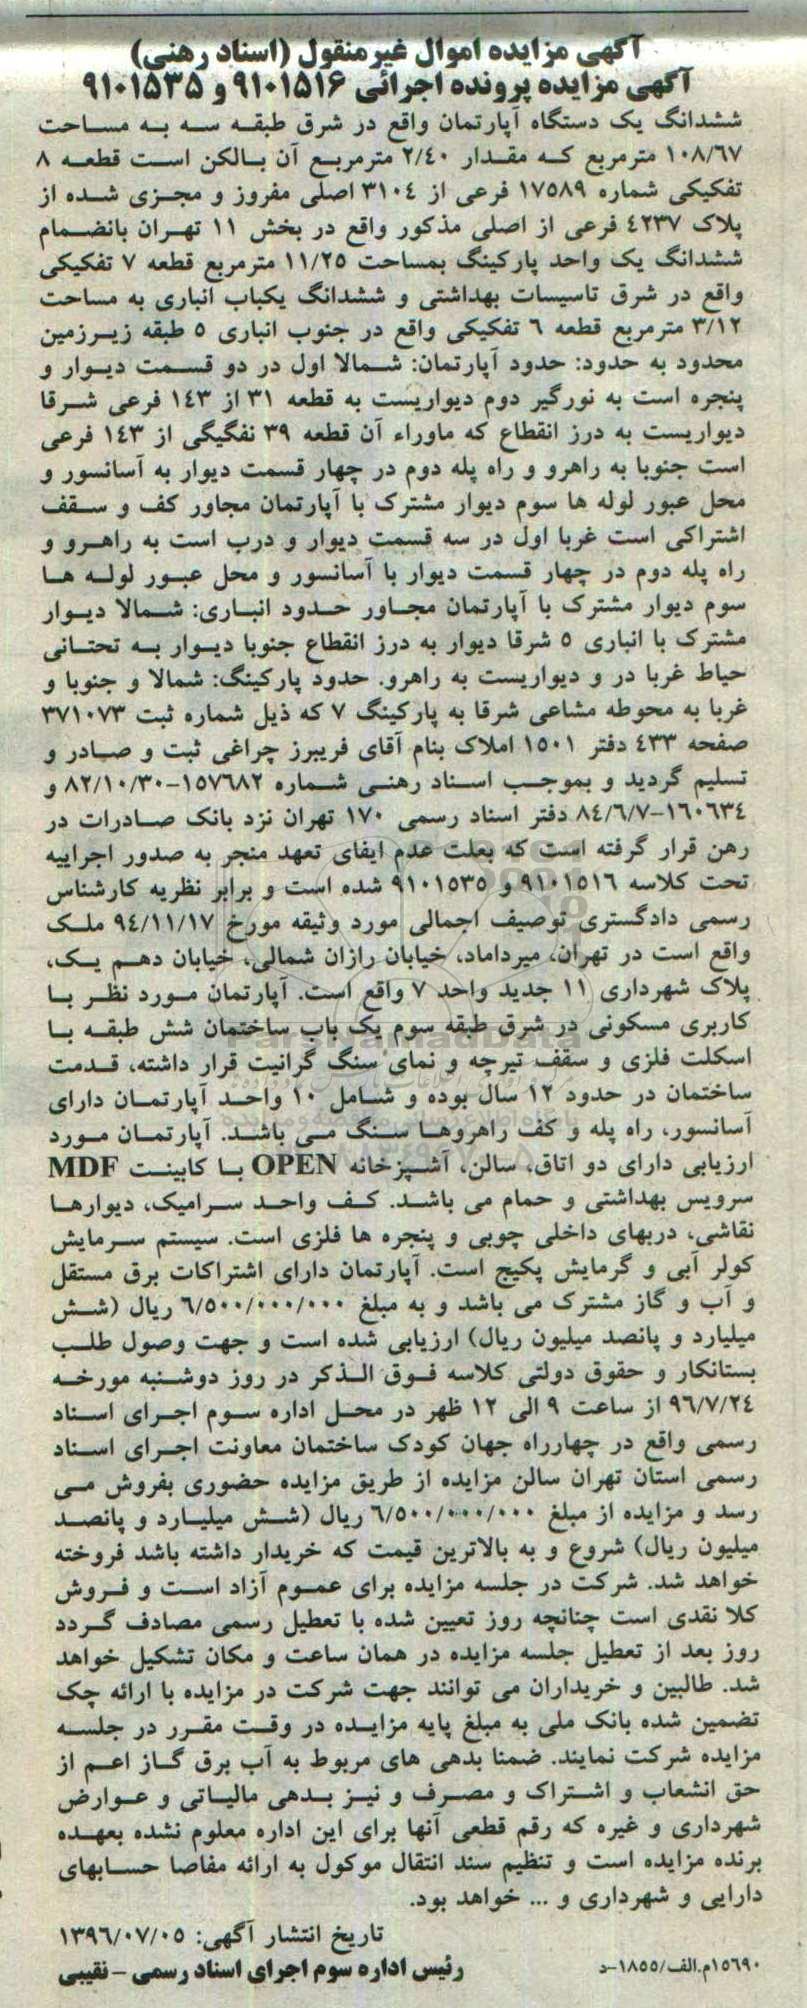 آگهی مزایده اموال غیرمنقول (اسناد رهنی)
آگهی مزایده پرونده اجرائی ۹۱۰۱۵۱۶ و ۹۱۰۱۵۳۵
ششدانگ یک دستگاه آپارتمان واقع در شرق طبقه سه به مساحت
۱۰۸/۶۷ مترمربع که مقدار ۲/٤۰ مترمربع آن بالکن است قطعه ۸
تفکیکی شماره ۱۷۵۸۹ فرعی از ۳۱۰٤ اصلی مفروز و مجزی شده از
پلاک ٤۲۳۷ فرعی از اصلی مذکور واقع در بخش ۱۱ تهران بانضمام
ششدانگ یک واحد پارکینگ بمساحت ۱۱/۲۵ مترمربع قطعه ۷ تفکیکی
واقع در شرق تاسیسات بهداشتی و ششدانگ یکباب انباری به مساحت
۳/۱۲ مترمربع قطعه ٦ تفکیکی واقع در جنوب انباری ۵ طبقه زیرزمین
محدود به حدود: حدود آپارتمان: شمالا اول در دو قسمت دیوار و
پنجره است به نورگیر دوم دیواریست به قطعه ۳۱ از ۱٤۳ فرعی شرقا
دیواریست به درز انقطاع که ماوراء آن قطعه ۳۹ نفگیگی از ۱٤۳ فرعی
است جنوبا به راهرو و راه پله دوم در چهار قسمت دیوار به آسانسور و
محل عبور لوله ها سوم دیوار مشترک با آپارتمان مجاور کف و سقف
اشتراکی است غربا اول در سه قسمت دیوار و درب است به راهرو و
راه پله دوم در چهار قسمت دیوار با آسانسور و محل عبور لوله ها
سوم دیوار مشترک با آپارتمان مجاور حدود انباری: شمالا دیوار
مشترک با انباری ۵ شرقا دیوار به درز انقطاع جنوبا دیوار به تحتانی
حیاط غربا در و دیواریست به راهرو. حدود پارکینگ: شمالا و جنوبا و
غربا به محوطه مشاعی شرقا به پارکینگ ۷ که ذیل شماره ثبت ۳۷۱۰۷۳
صفحه ٤۳۳ دفتر ۱۵۰۱ املاک بنام آقای فریبرز چراغی ثبت و صادر و
تسلیم گردید و بموجب اسناد رهنی شماره ۱۵۷٦۸۲-۸۲/۱۰/۳۰ و
۱٦۰٦۳٤-۸٤/٦/۷ دفتر اسناد رسمی ۱۷۰ تهران نزد بانک صادرات در
رهن قرار گرفته است که بعلت عدم ایفای تعهد منجر به صدور اجراییه
تحت کلاسه ۹۱۰۱۵۱٦ و ۹۱۰۱۵۳۵ شده است و برابر نظریه کارشناس
رسمی دادگستری توصیف اجمالی مورد وثیقه مورخ ۹٤/۱۱/۱۷ ملک
واقع است در تهران، میرداماد، خیابان رازان شمالی، خیابان دهم یک،
پلاک شهرداری ۱۱ جدید واحد ۷ واقع است. آپارتمان مورد نظر با
کاربری مسکونی در شرق طبقه سوم یک باب ساختمان شش طبقه با
اسکلت فلزی و سقف تیرچه و نمای سنگ گرانیت قرار داشته، قدمت
ساختمان در حدود ۱۲ سال بوده و شامل ۱۰ واحد آپارتمان دارای
آسانسور، راه پله و کف راهروها سنگ می باشد. آپارتمان مورد
ارزیابی دارای دو اتاق، سالن، آشپزخانه OPEN با کابینت MDF
سرویس بهداشتی و حمام می باشد. کف واحد سرامیک، دیوارها
نقاشی، دربهای داخلی چوبی و پنجره ها فلزی است. سیستم سرمایش
کولر آبی و گرمایش پکیج است. آپارتمان دارای اشتراکات برق مستقل
و آب و گاز مشترک می باشد و به مبلغ ٦/۵۰۰/۰۰۰/۰۰۰ ریال (شش
میلیارد و پانصد میلیون ریال) ارزیابی شده است و جهت وصول طلب
بستانکار و حقوق دولتی کلاسه فوق الذکر در روز دوشنبه مورخه
۹٦/۷/۲٤ از ساعت ۹ الی ۱۲ ظهر در محل اداره سوم اجرای اسناد
رسمی واقع در چهارراه جهان کودک ساختمان معاونت اجرای اسناد
رسمی استان تهران سالن مزایده از طریق مزایده حضوری بفروش می
رسد و مزایده از مبلغ ٦/۵۰۰/۰۰۰/۰۰۰ ریال (شش میلیارد و پانصد
میلیون ریال) شروع و به بالاترین قیمت که خریدار داشته باشد فروخته
خواهد شد. شرکت در جلسه مزایده برای عموم آزاد است و فروش
کلا نقدی است چنانچه روز تعیین شده با تعطیل رسمی مصادف گردد
روز بعد از تعطیل جلسه مزایده در همان ساعت و مکان تشکیل خواهد
شد. طالبین و خریداران می توانند جهت شرکت در مزایده با ارائه چک
تضمین شده بانک ملی به مبلغ پایه مزایده در وقت مقرر در جلسه
مزایده شرکت نمایند. ضمنا بدهی های مربوط به آب برق گاز اعم از
حق انشعاب و اشتراک و مصرف و نیز بدهی مالیاتی و عوارض
شهرداری و غیره که رقم قطعی آنها برای این اداره معلوم نشده بعهده
برنده مزایده است و تنظیم سند انتقال موکول به ارائه مفاصا حسابهای
دارایی و شهرداری و ... خواهد بود.
تاریخ انتشار آگهی: ۱۳۹٦/۰۷/۰۵
رئیس اداره سوم اجرای اسناد رسمی - نقیبی
۱۵٦۹۰م.الف/۱۸۵۵-د